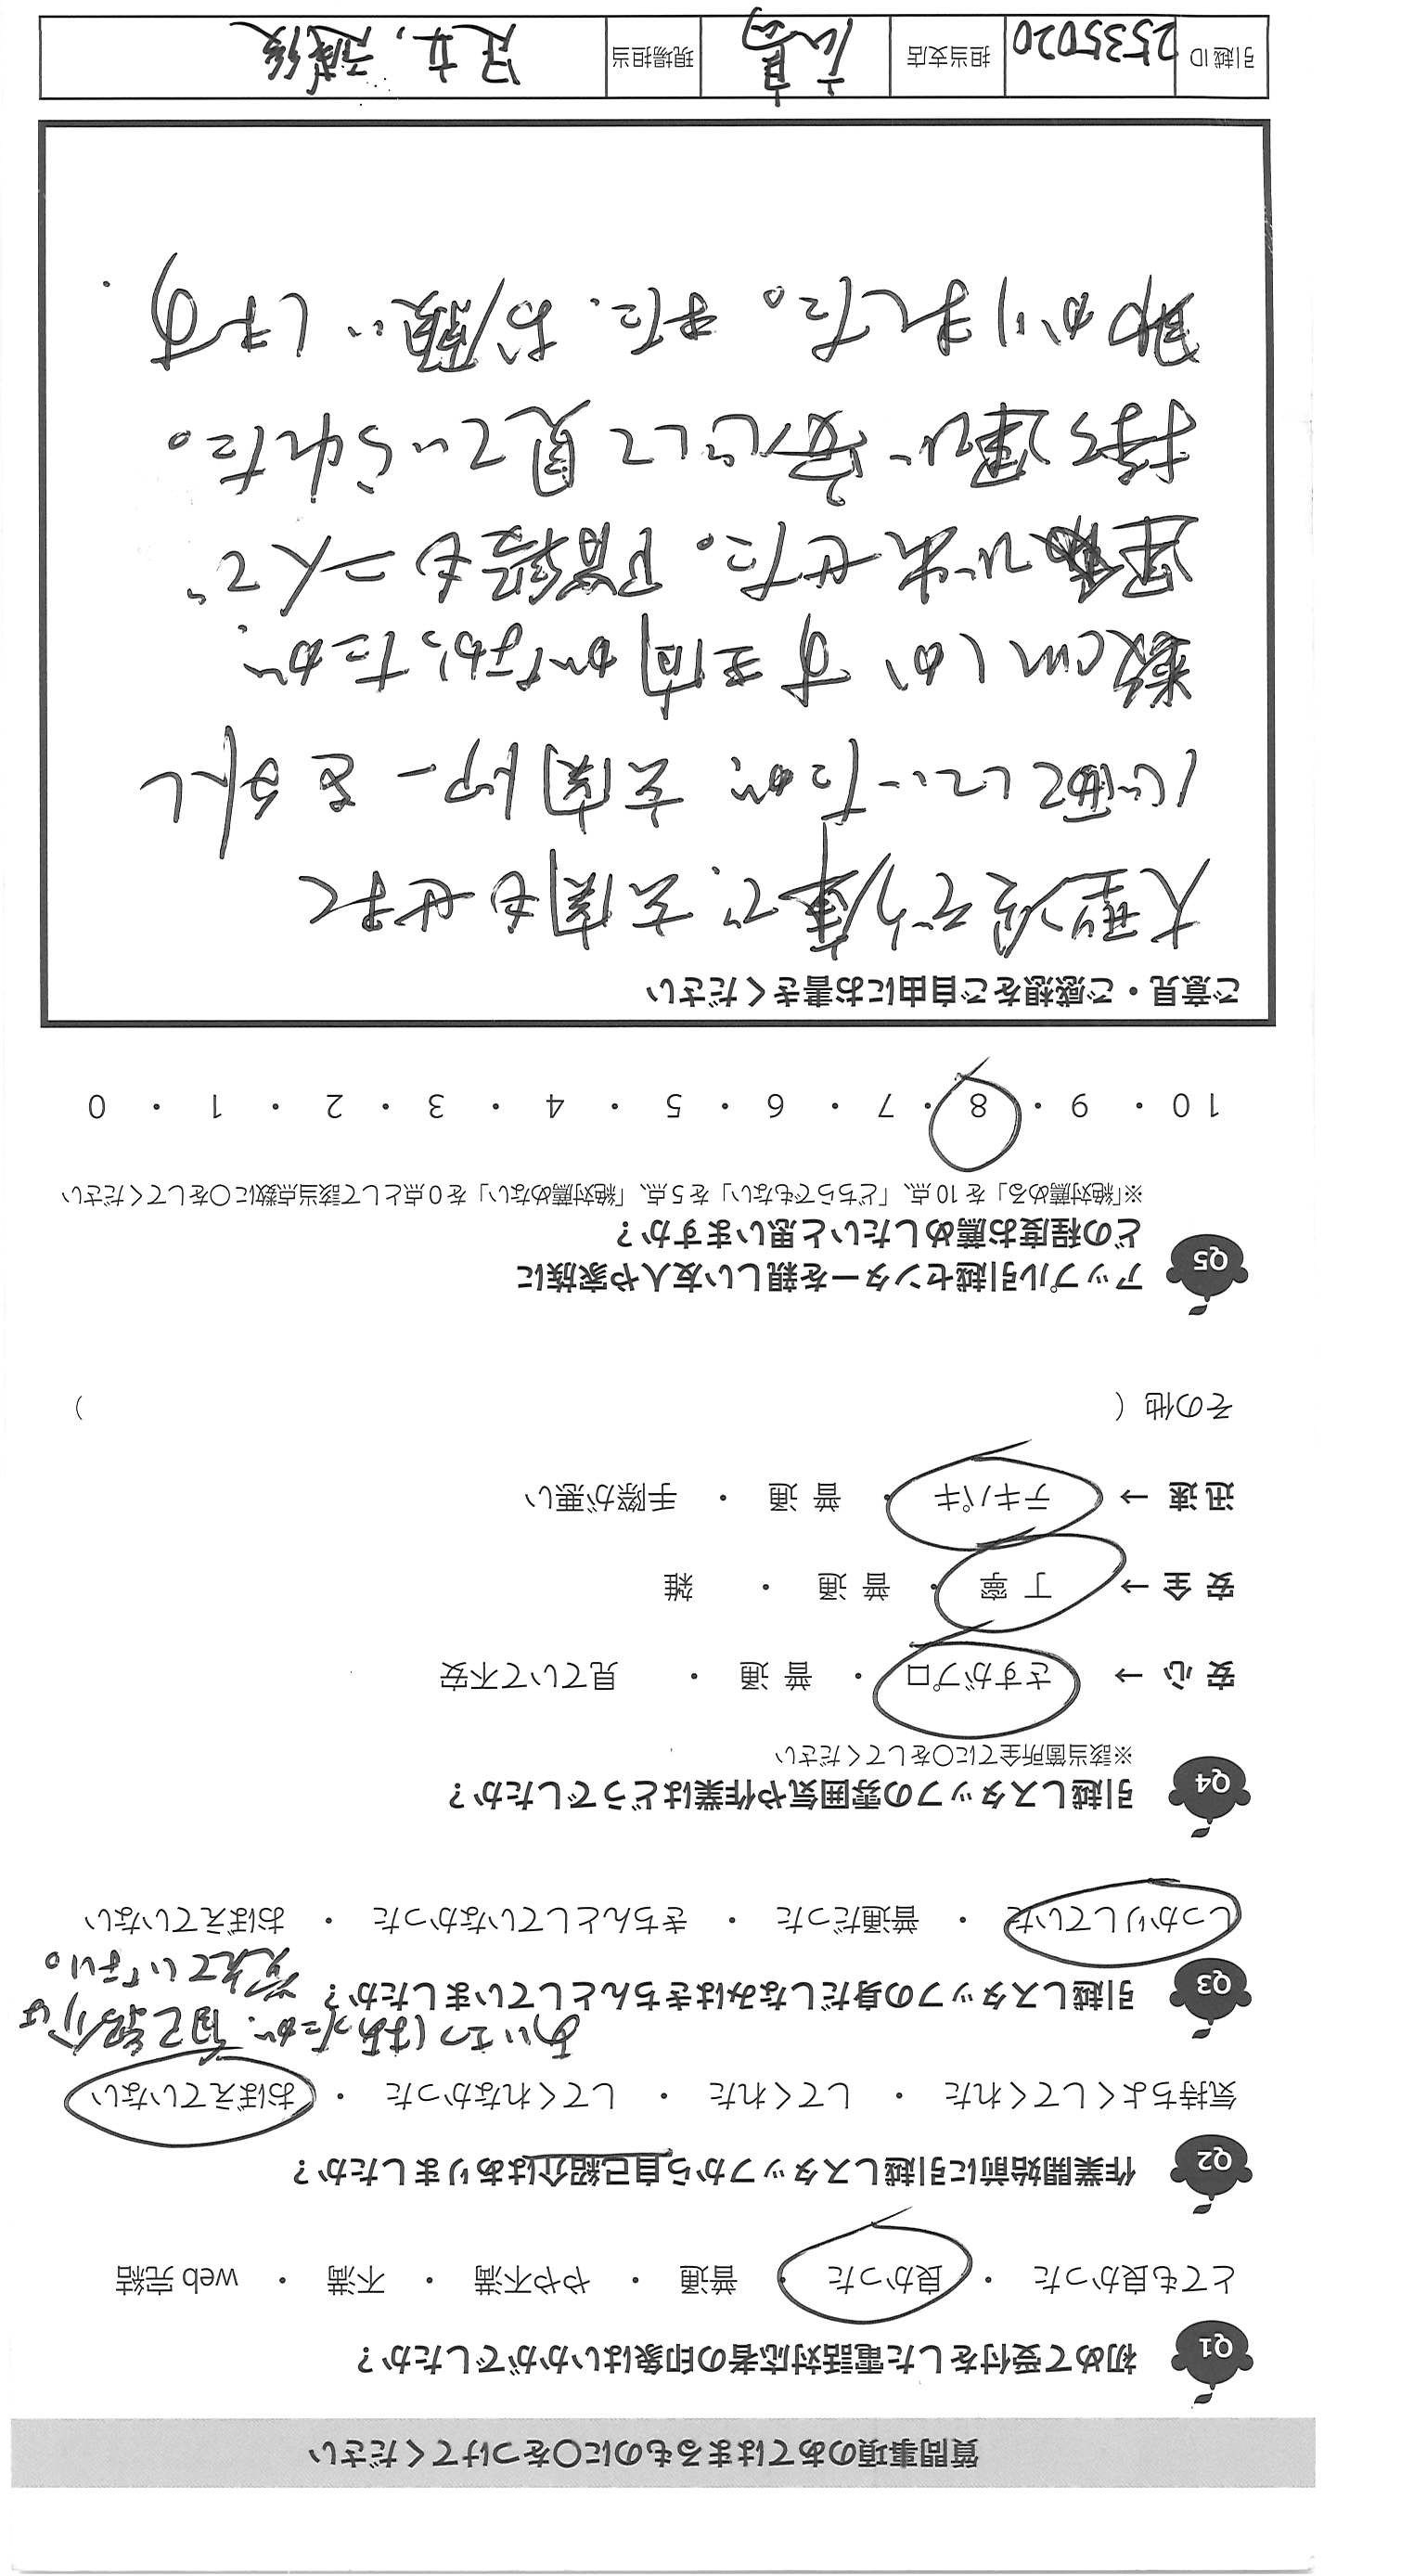 質問事項のあてはまるものに○をつけてください
Q1 初めて受付をした電話対応者の印象はいかがでしたか？
とても良かった ・ 良かった ・ 普通 ・ やや不満 ・ 不満 ・ web 完結
Q2 作業開始前に引越しスタッフから自己紹介はありましたか？
気持ちよくしてくれた ・ してくれた ・ してくれなかった ・ おぼえていない
あいさつはあったが、自己紹介は
覚えていない。
Q3 引越しスタッフの身だしなみはきちんとしていましたか？
しっかりしていた ・ 普通だった ・ きちんとしていなかった ・ おぼえていない
Q4 引越しスタッフの雰囲気や作業はどうでしたか？
※該当箇所全てに○をしてください
安 心 → さすがプロ ・ 普 通 ・ 見ていて不安
安 全 → 丁 寧 ・ 普 通 ・ 雑
迅 速 → テキパキ ・ 普 通 ・ 手際が悪い
その他（ ）
Q5 アップル引越センターを親しい友人や家族に
どの程度お薦めしたいと思いますか？
※「絶対薦める」を 10 点、「どちらでもない」を 5 点、「絶対薦めない」を 0 点として該当点数に○をしてください
10 ・ 9 ・ 8 ・ 7 ・ 6 ・ 5 ・ 4 ・ 3 ・ 2 ・ 1 ・ 0
ご意見・ご感想をご自由にお書きください
大型冷ぞう庫で、玄関もせまく
心配していたが、玄関ドアーを外し
数cmしかす き間がなかったが、
運び出せた。階段も二人で
持ち運び安心して見ていられた。
助かりました。また、お願いします
引越 ID 2535020 担当支店 広島 現場担当 足立,